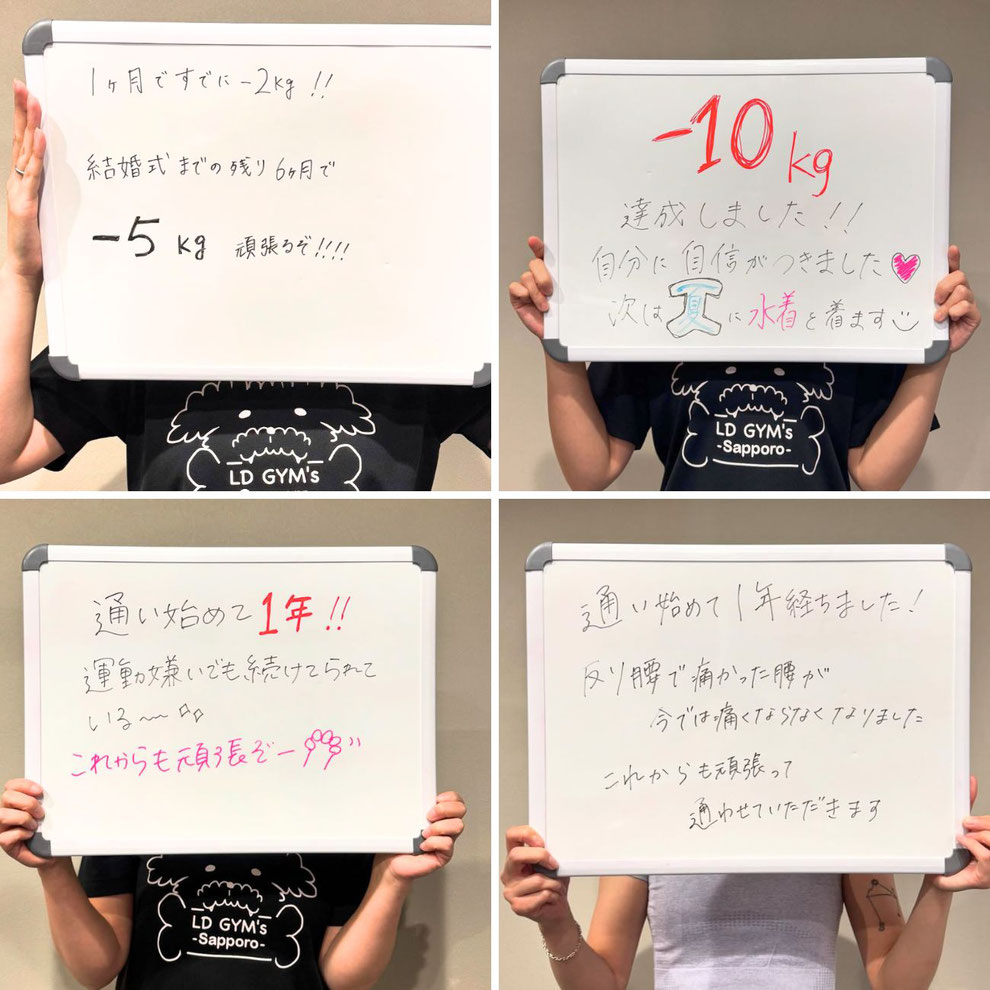 1ヶ月ですでに-2kg!!
結婚式までの残り6ヶ月で
-5kg 頑張るぞ!!!!
LD GYM's
-10kg
達成しました!!
自分に自信がつきました
次は夏に水着を着ます
LD GYM's
-Sapporo-
通い始めて1年!!
運動嫌いでも続けてられて
いる〜〜
これからも頑張ぞー
LD GYM's
-Sapporo-
通い始めて1年経ちました!
反り腰で痛かった腰が
今では痛くならなくなりました
これからも頑張って
通わせていただきます